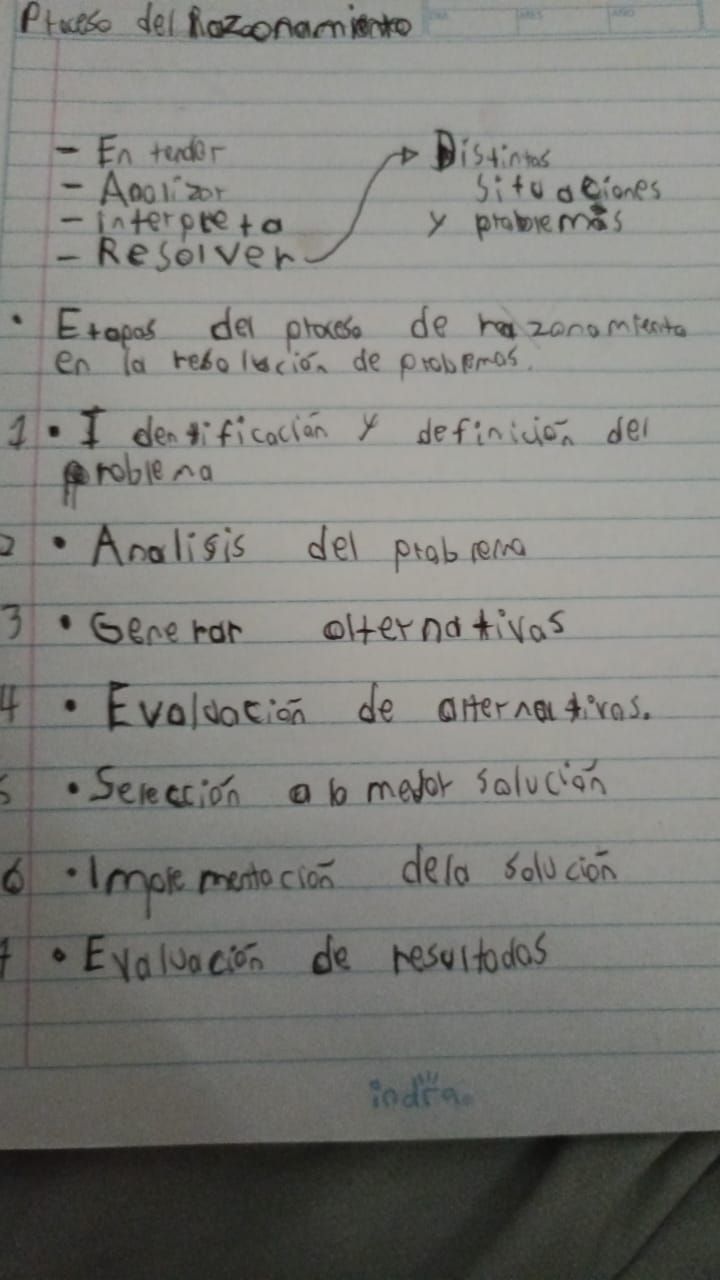 Proceso del Razonamiento
DIA MES AÑO
- Entender
- Analizar
- interpreta
- Resolver
Distintas
situaciones
y problemas
• Etapas del proceso de razonamiento
en la resolución de problemas.
1 • Identificación y definición del
problema
2 • Analisis del problema
3 • Generar alternativas
4 • Evaluación de alternativas.
5 • Selección a la mejor solución
6 • Implementación dela solución
7 • Evaluación de resultados
indra